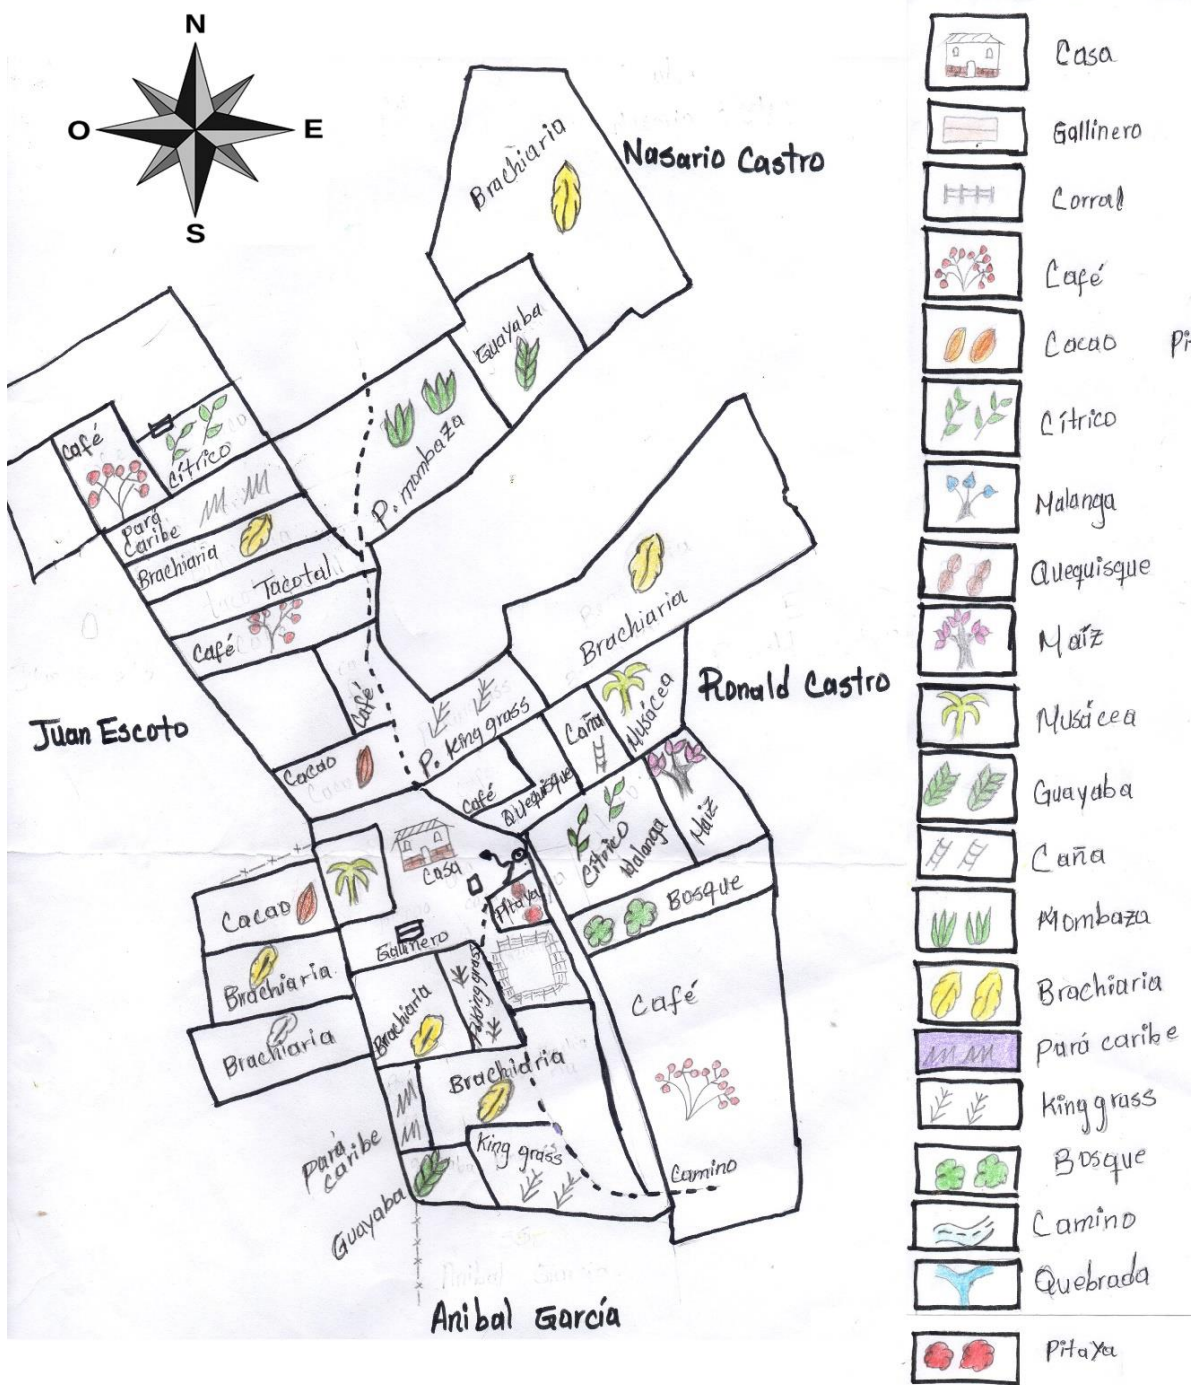 N
O
E
S
Brachiaria
Nasario Castro
Guayaba
P. mombaza
Café
Cítrico
Pará
Caribe
Brachiaria
Tacotal
Café
Café
Cacao
Juan Escoto
Brachiaria
P. King grass
Caña
Musácea
Ronald Castro
Café
Quequisque
Cítrico
Malanga
Maiz
Bosque
Casa
Pitaya
Cacao
Galinero
Brachiaria
Brachiaria
Brachiaria
Brachiaria
Café
Pará
caribe
King grass
Guayaba
Camino
Anibal García
Casa
Gallinero
Corral
Café
Cacao
Pi
Cítrico
Malanga
Quequisque
Maíz
Musácea
Guayaba
Caña
Mombaza
Brachiaria
Pará caribe
King grass
Bosque
Camino
Quebrada
Pitaya